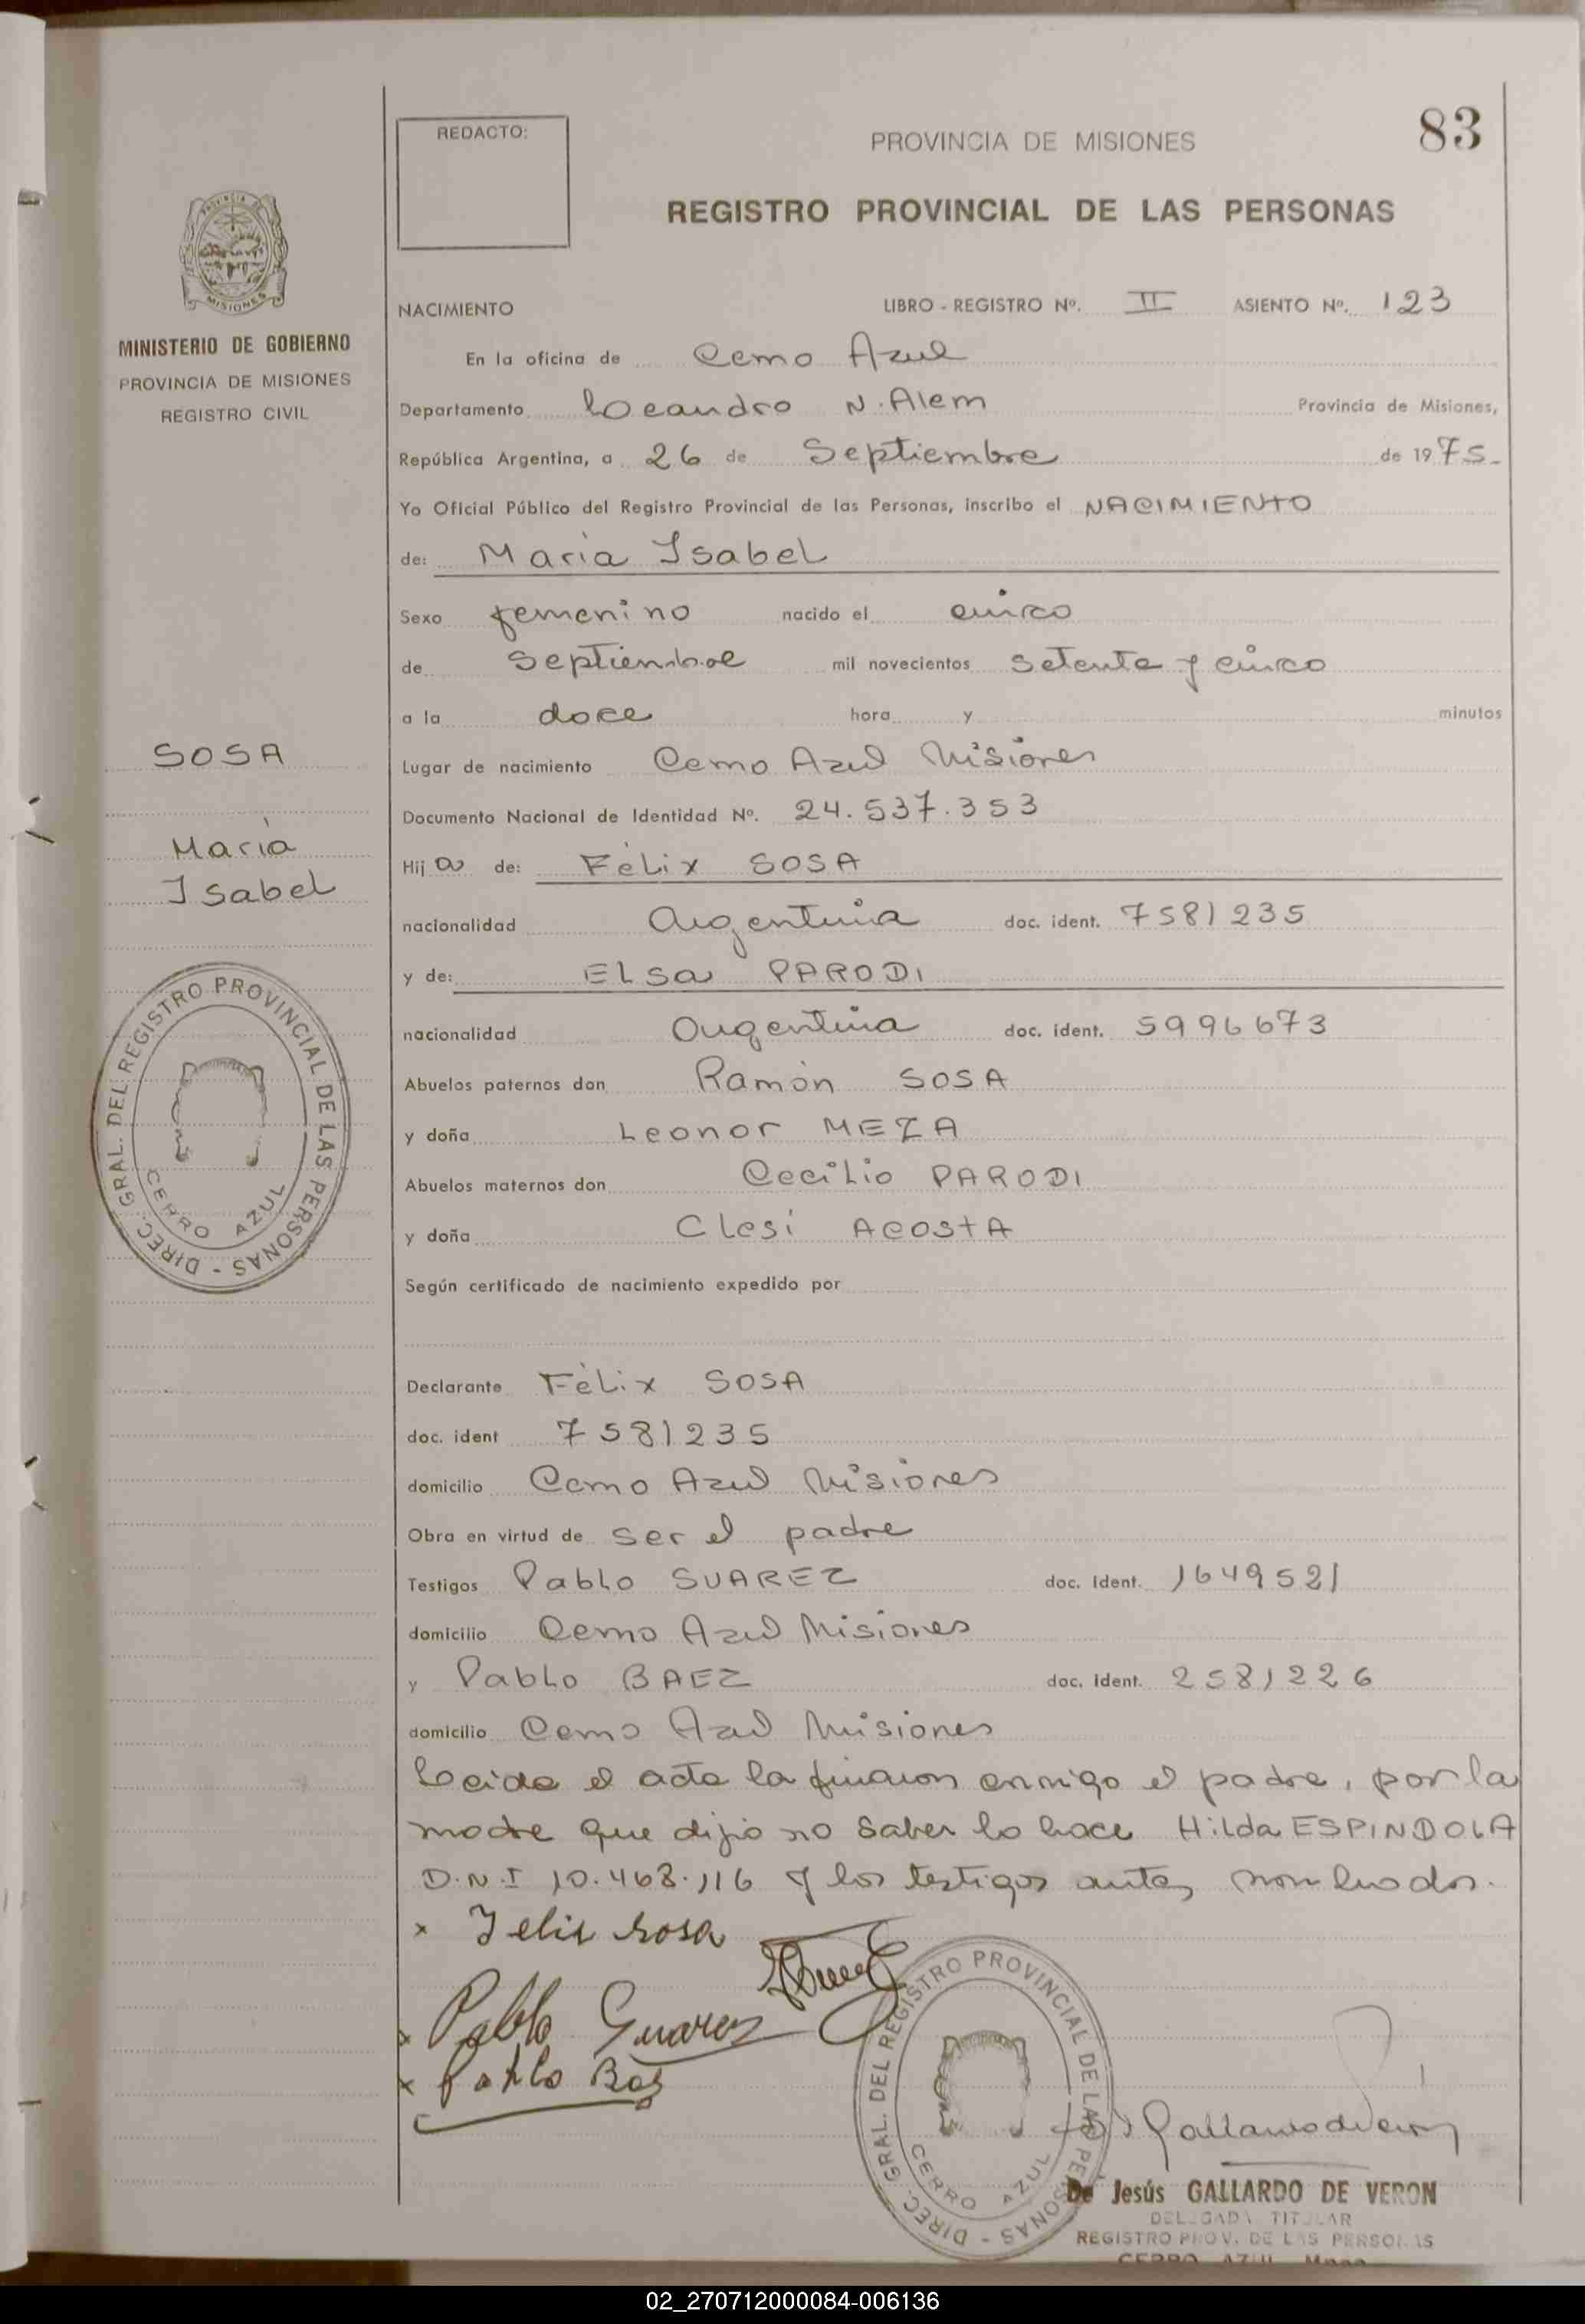 83
REDACTO:
PROVINCIA DE MISIONES
REGISTRO PROVINCIAL DE LAS PERSONAS
MISIONES
MINISTERIO DE GOBIERNO
PROVINCIA DE MISIONES
REGISTRO CIVIL
NACIMIENTO LIBRO - REGISTRO Nº. II ASIENTO Nº. 123
En la oficina de Cerro Azul
Departamento Leandro N. Alem Provincia de Misiones,
República Argentina, a 26 de Septiembre de 1975-
Yo Oficial Público del Registro Provincial de las Personas, inscribo el NACIMIENTO
de: María Isabel
Sexo femenino nacido el cinco
de Septiembre mil novecientos setenta y cinco
a la doce hora y minutos
SOSA
María
Isabel
Lugar de nacimiento Cerro Azul Misiones
Documento Nacional de Identidad Nº. 24.537.353
Hija de: Félix SOSA
nacionalidad Argentina doc. ident. 7581235
y de: ELSa PARODI
nacionalidad Argentina doc. ident. 5996673
Abuelos paternos don Ramón SOSA
y doña Leonor MEZA
Abuelos maternos don Cecilio PARODI
y doña Clesi ACOSTA
DIREC. GRAL. DEL REGISTRO PROVINCIAL DE LAS PERSONAS -
CERRO AZUL
Según certificado de nacimiento expedido por
Declarante Félix SOSA
doc. ident 7581235
domicilio Cerro Azul Misiones
Obra en virtud de ser el padre
Testigos Pablo SUAREZ doc. ident. 1649521
domicilio Cerro Azul Misiones
y Pablo BAEZ doc. ident. 2581226
domicilio Cerro Azul Misiones
Leida el acta la firmaron conmigo el padre, por la
madre que dijo no saber lo hace Hilda ESPINDOLA
D.N.I 10.468.116 y los testigos antes nombrados.
x Felix Sosa
x Pablo Suarez
x Pablo Baz
DIREC. GRAL. DEL REGISTRO PROVINCIAL DE LAS PERSONAS -
CERRO AZUL
De Jesús GALLARDO DE VERON
DELEGADA TITULAR
REGISTRO PROV. DE LAS PERSONAS
CERRO AZUL
02_270712000084-006136